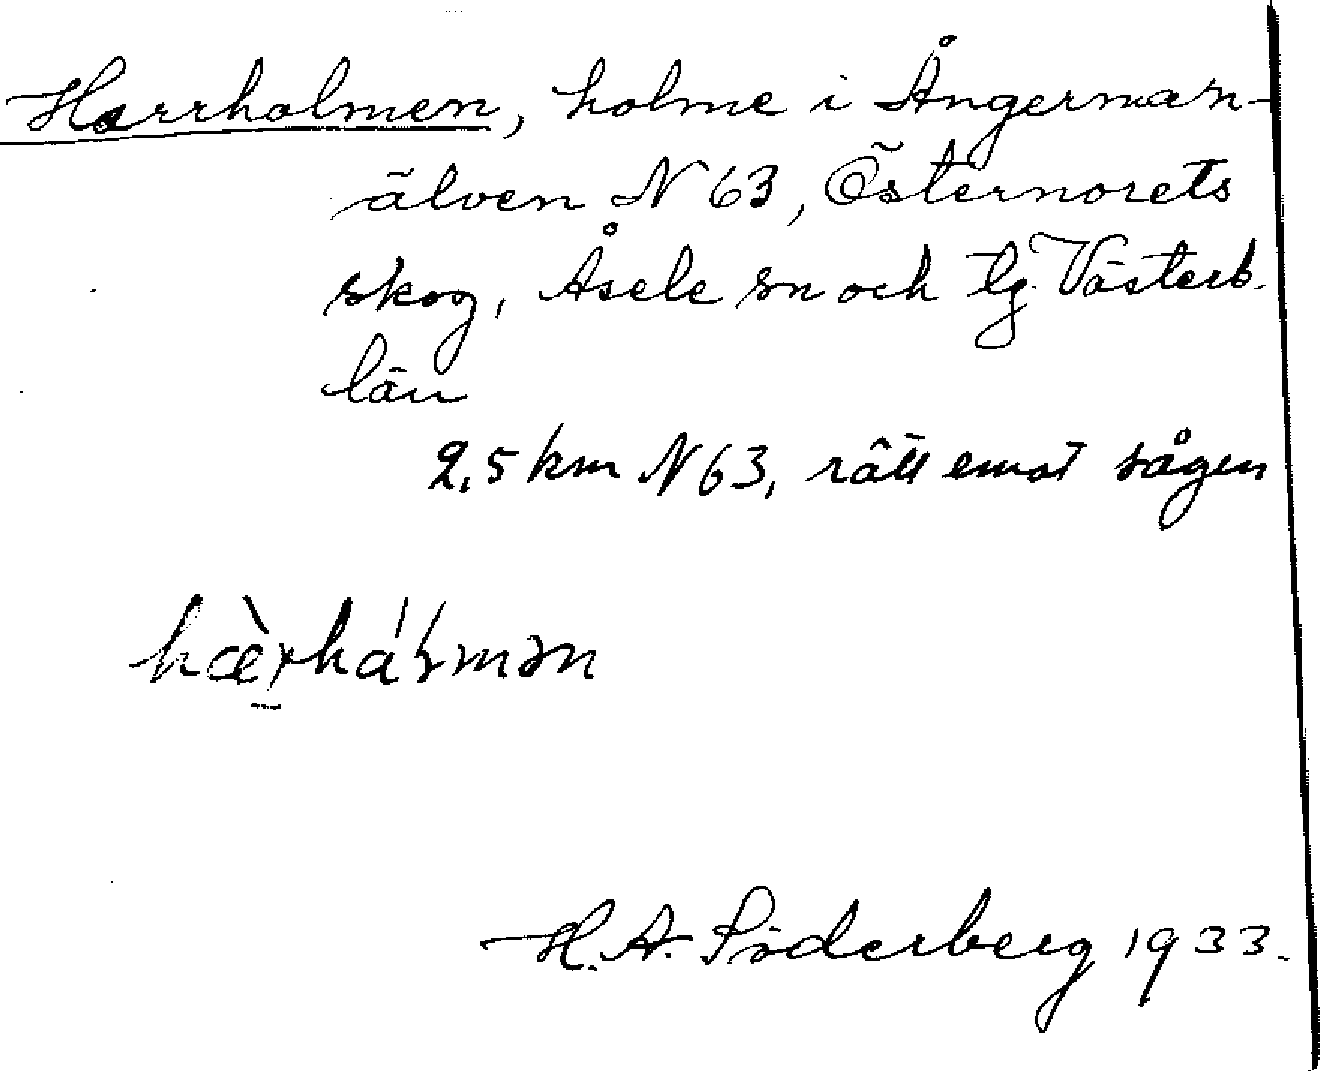 Harrholmen, holme i Ångerman-
älven N 63, Östernorets
skog, Åsele sn och lg. Västerb.
län
2,5 km N 63, rätt emot sågen
H. A. Söderberg 1933.